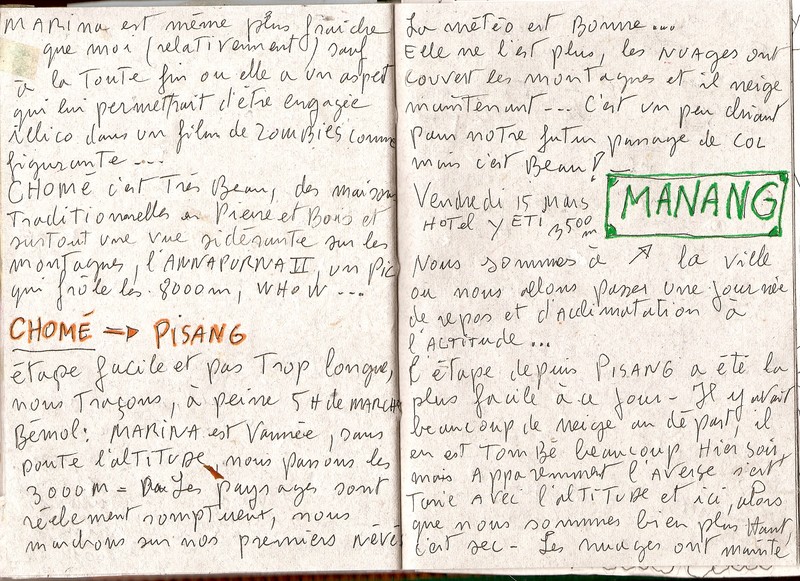 MARINA est même plus fraîche
que moi (relativement) sauf
à la toute fin ou elle a un aspect
qui lui permettrait d'être engagée
illico dans un film de ZOMBIES comme
figurante ....
CHOMÉ c'est Très Beau, des maisons
Traditionnelles en Pierre et Bois et
surtout une vue sidérante sur les
montagnes, l'ANNAPURNA II, un Pic
qui frôle les 8000m, WHOW ...
CHOMÉ → PISANG
étape facile et pas Trop longue,
nous Traçons, à peine 5H de MARCHE
Bémol: MARINA est Vannée, sans
doute l'ALTITUDE, nous passons les
3000M = Les paysages sont
réelement somptueux, nous
marchons sur nos premiers névés
La météo est Bonne ...
Elle ne l'est plus, les NUAGES ont
couvert les montagnes et il neige
maintenant ... C'est un peu chiant
pour notre futur passage de COL
mais c'est Beau!
Vendredi 15 Mars
MANANG
HOTEL YETI 3500 m
Nous sommes à ↗ la ville
ou nous allons passer une journée
de repos et d'Aclimatation à
l'ALTITUDE ...
l'étape depuis PISANG a été la
plus facile à ce jour - Il y avait
beaucoup de neige au départ, il
en est TOMBÉ beaucoup Hier soir,
mais Apparemment l'AVERSE s'est
Tarie AVEC l'ALTITUDE et ici, alors
que nous sommes bien plus Haut,
c'est sec - Les nuages ont mainte